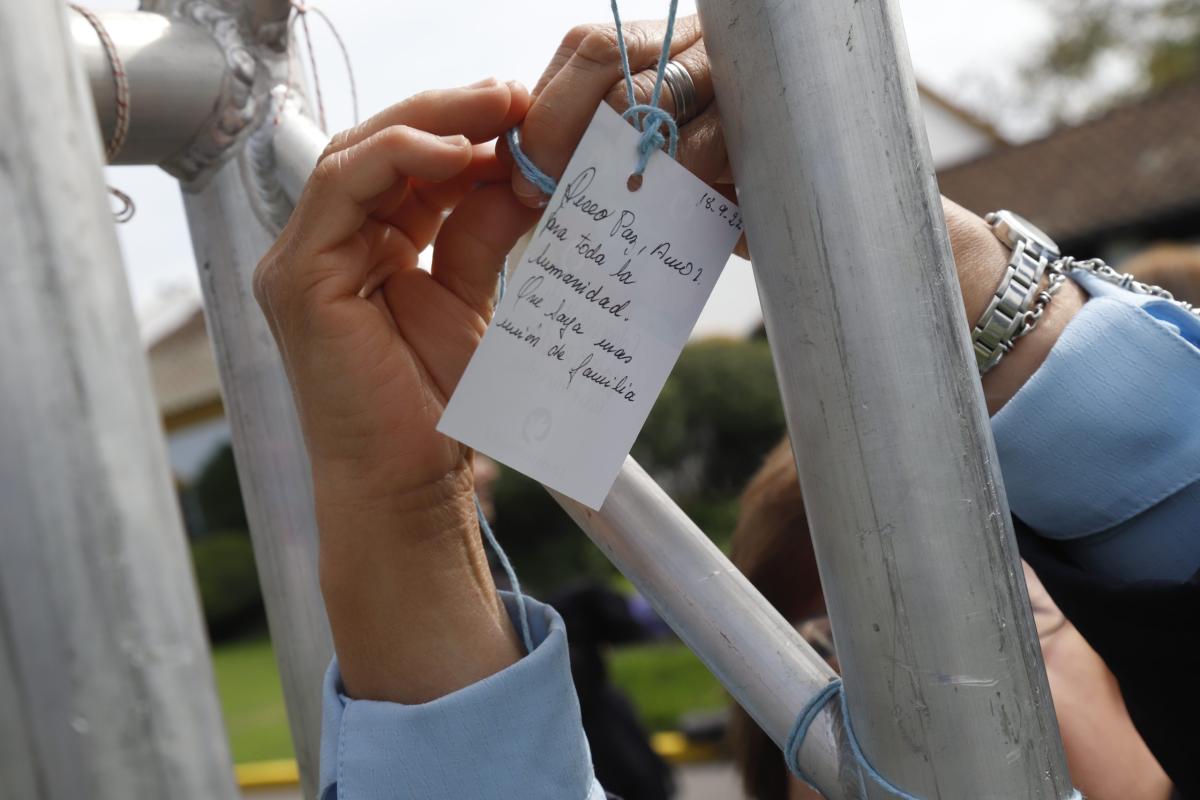 18.9.22
Deseo Paz, Amor
para toda la
humanidad.
Que haya mas
unión de familia